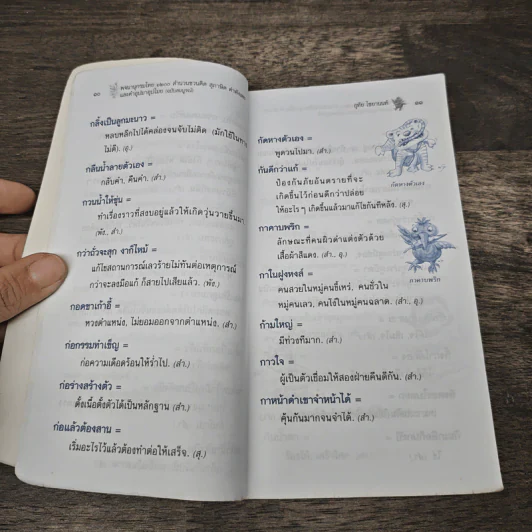 ๑๐ พจนานุกรมไทย ๒๒๐๐ สำนวนชวนคิด สุภาษิต คำพังเพย
และคำอุปมาอุปไมย (ฉบับสมบูรณ์)
กลิ้งเป็นลูกมะนาว =
หลบหลีกไปได้คล่องจนจับไม่ติด (มักใช้ในทาง
ไม่ดี). (สุ.)
กลืนน้ำลายตัวเอง =
กลับคำ, คืนคำ. (สำ.)
กวนน้ำให้ขุ่น =
ทำเรื่องราวที่สงบอยู่แล้วให้เกิดวุ่นวายขึ้นมา
(พัง., สำ.)
กว่าถั่วจะสุก งาก็ไหม้ =
แก้ไขสถานการณ์เลวร้ายไม่ทันต่อเหตุการณ์
กว่าจะลงมือแก้ ก็สายไปเสียแล้ว. (พัง.)
กอดขาเก้าอี้ =
หวงตำแหน่ง, ไม่ยอมออกจากตำแหน่ง. (สำ.)
ก่อกรรมทำเข็ญ =
ก่อความเดือดร้อนให้ร่ำไป. (สำ.)
ก่อร่างสร้างตัว =
ตั้งเนื้อตั้งตัวได้เป็นหลักฐาน (สำ.)
ก่อแล้วต้องสาน =
เริ่มอะไรไว้แล้วต้องทำต่อให้เสร็จ. (สุ.)
๑๑
กัดหางตัวเอง =
พูดวนไปมา. (สำ.)
กัดหางตัวเอง
กันดีกว่าแก้ =
ป้องกันภัยอันตรายที่จะ
เกิดขึ้นไว้ก่อนดีกว่าปล่อย
ให้อะไรๆ เกิดขึ้นแล้วมาแก้ไขกันทีหลัง. (สุ.)
กาคาบพริก =
ลักษณะที่คนผิวดำแต่งตัวด้วย
เสื้อผ้าสีแดง. (สำ., อุ.)
กาคาบพริก
กาในฝูงหงส์ =
คนสวยในหมู่คนขี้เหร่, คนชั่วใน
หมู่คนเลว, คนโง่ในหมู่คนฉลาด. (สำ., อุ.)
ก้ามใหญ่ =
มีท่วงทีมาก. (สำ.)
กาวใจ =
ผู้เป็นตัวเชื่อมให้สองฝ่ายคืนดีกัน. (สำ.)
กาหน้าดำเขาจำหน้าได้ =
คุ้นกันมากจนจำได้. (สำ.)